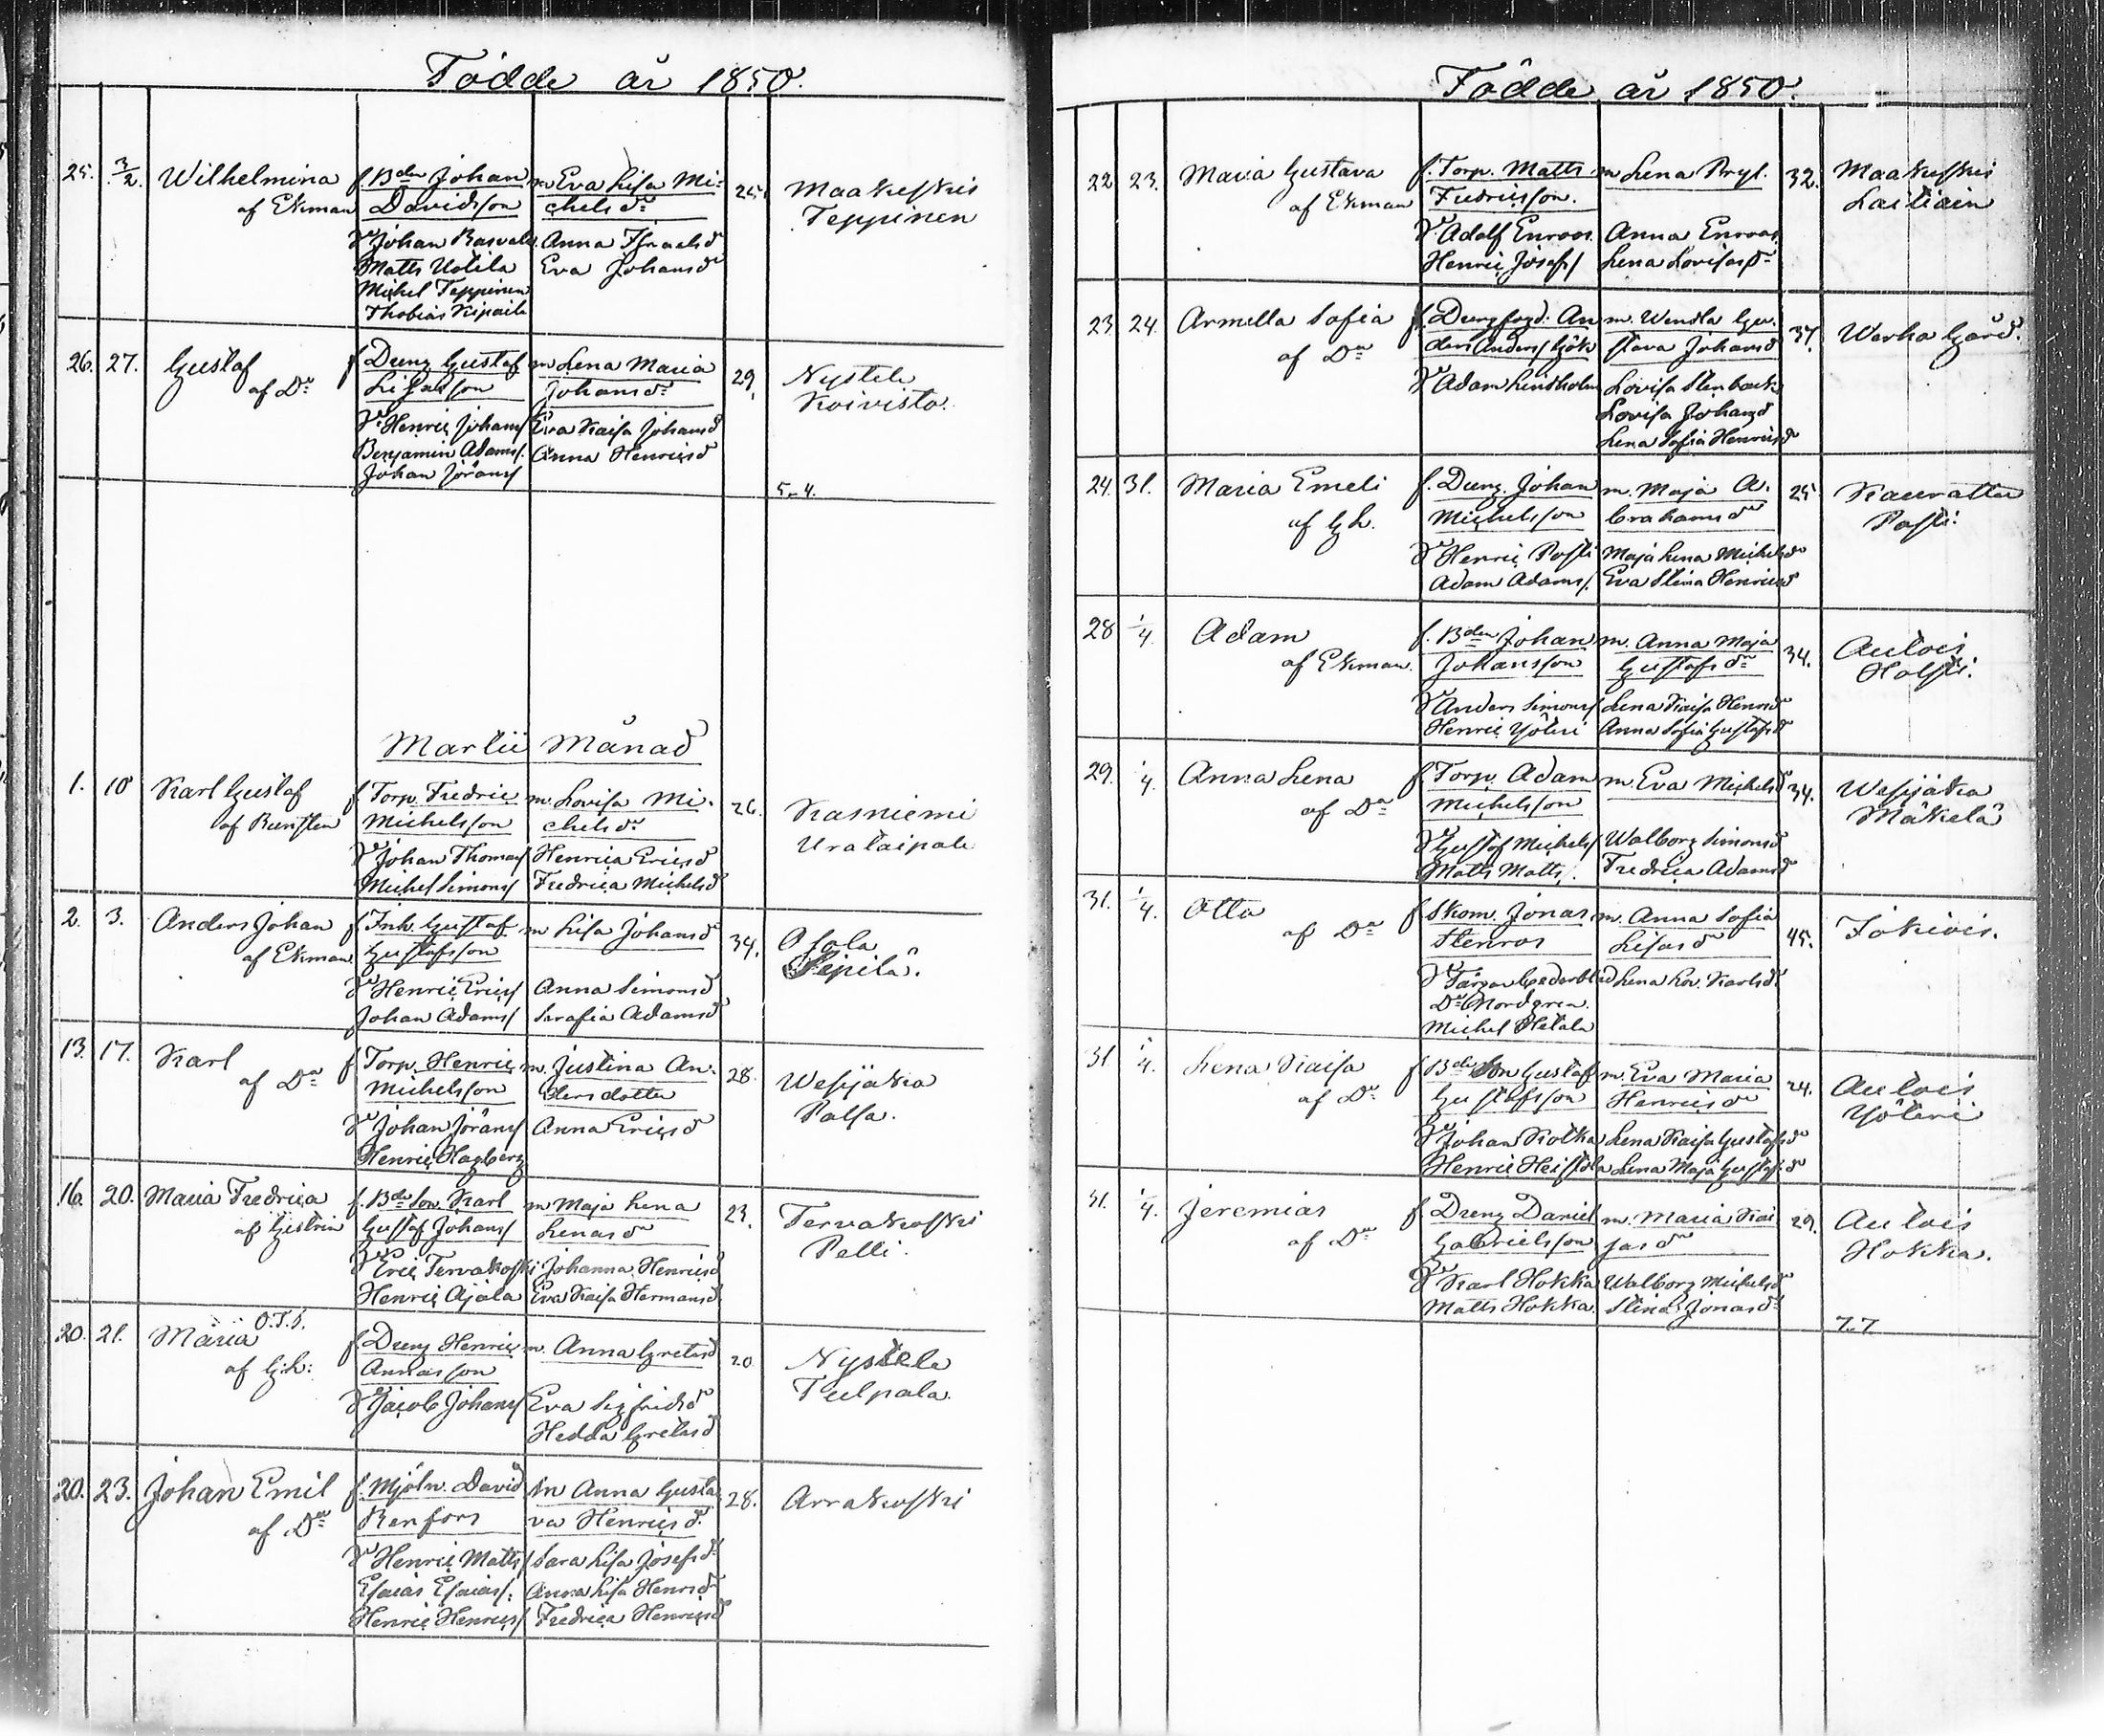 Födde år 1850.
25. 3/2. Wilhelmina f. Bden Johan m Eva Lisa Mi- 25. Maakeskis
af Ekman Davidsson chelsdr Teppinen
Johan Rasvala Anna Israelsd
Matts Uotila Eva Johansdr
Michel Teppinen
Thobias
26. 27. Gustaf f Dreng Gustaf m Lena Maria 29. Nystele
af Do Lisasson Johansdr Koivisto.
Henric Johans/ Eva Kaisa Johansd
Benjamin Adams/. Anna Henricsd
Johan Jörans/
5. 4.
Martii Månad
1. 10 Karl Gustaf f Torp. Fredric m. Lovisa Mi- 26. Kasniemi
af Michelsson chelsdr Urataipale
Johan Thomas/ Henrica Ericsd
Michel Simons/ Fredrica Michelsd
2. 3. Anders Johan f Inh. Gustaf m Lisa Johansd 34. Osola
af Ekman Gustafsson Sipilä.
Henric Erics/ Anna Simonsd
Johan Adams/ Serafia Adamsd
13. 17. Karl f Torp. Henric m. Justina An- 28. Wesijaka
af Do Michelsson dersdotter Palsa.
Johan Jörans/ Anna Ericsd
Henric Hagberg
16. 20. Maria Fredrica f. Bde Son Karl m Maja Lena 23. Tervakoski
af Gustaf Johans/ Lenasd Pelli.
Eric Tervakoski Johanna Henricsd
Henric Ajala Eva Kaisa Hermansd
O.T.S.
20. 21. Maria f Dreng Henric m. Anna Gretasd 20 Nystele
af Gh: Annasson Tulpala.
Jacob Johans/ Eva Sigfridsd
Hedda Gretasd
20. 23. Johan Emil f. Mjöln. David m Anna Gusta- 28. Arrakoski
af Do Renfors va Henricsd.
Henric Matts/ Sara Lisa Josefsdr
Esaias Esaias/. Anna Lisa Henrsd
Henric Henrics/ Fredrica Henricsd
Födde år 1850.
22 23. Maria Gustava f. Torp. Matts m Lena Pryl. 32. Maakeskis
af Ekman Fredricsson. Laitiain
Adolf Enroos Anna Enroos
Henric Josefs/ Lena Lovisasdr
23. 24. Armilla Sofia f. Drengfogd. An- m. Wendla Gu- 37. Warho Gård.
af Do ders Anders/ Gök stava Johansd
Adam Lindholm Lovisa Stenback
Lovisa Johansd
Lena Sofia Henricsd
24. 31. Maria Emeli f. Dreng. Johan m. Maja A- 25 Kauratta
af Gh. Michelsson brahamsdr Posti.
Henric Posti Maja Lena Michelsdr
Adam Adams/. Eva Stina Henricsd
28 1/4. Adam f. Bden Johan m. Anna Maja 34. Autois
af Ekman. Johansson Gustafsdr Holsti.
Anders Simons/ Lena Kaisa Henrsdr
Henric Yöteri Anna Sofia Gustafsd
29. 1/4. Anna Lena f. Torp. Adam m. Eva Michelsd 34. Wesijaka
af Do Michelsson Mäkelä
Gustaf Michels/ Walborg Simonsd
Matts Matts/. Fredrica Adamsd
31. 1/4. Otto f Skom. Jonas m. Anna Sofia 45. Jokiois.
af Do Stenros Lisasd
Färgar Cederblad Lena Lov. Karlsd.
Do Nordgren.
Michel Hetala
31 1/4. Lena Kaisa f Bde Son Gustaf m. Eva Maria 24. Autois
af Do Gustafsson Henricsdr Yöteri
Johan Kotka Lena Kaisa Gustafsdr
Henric Heistola Lena Maja Gustafsd
31. 1/4. Jeremias f. Dreng Daniel m. Maria Kai- 29. Autois
af Do Gabrielsson sasdr Hokka.
Karl Hokka Walborg Michelsd
Matts Hokka. Stina Jonasdr
7. 7